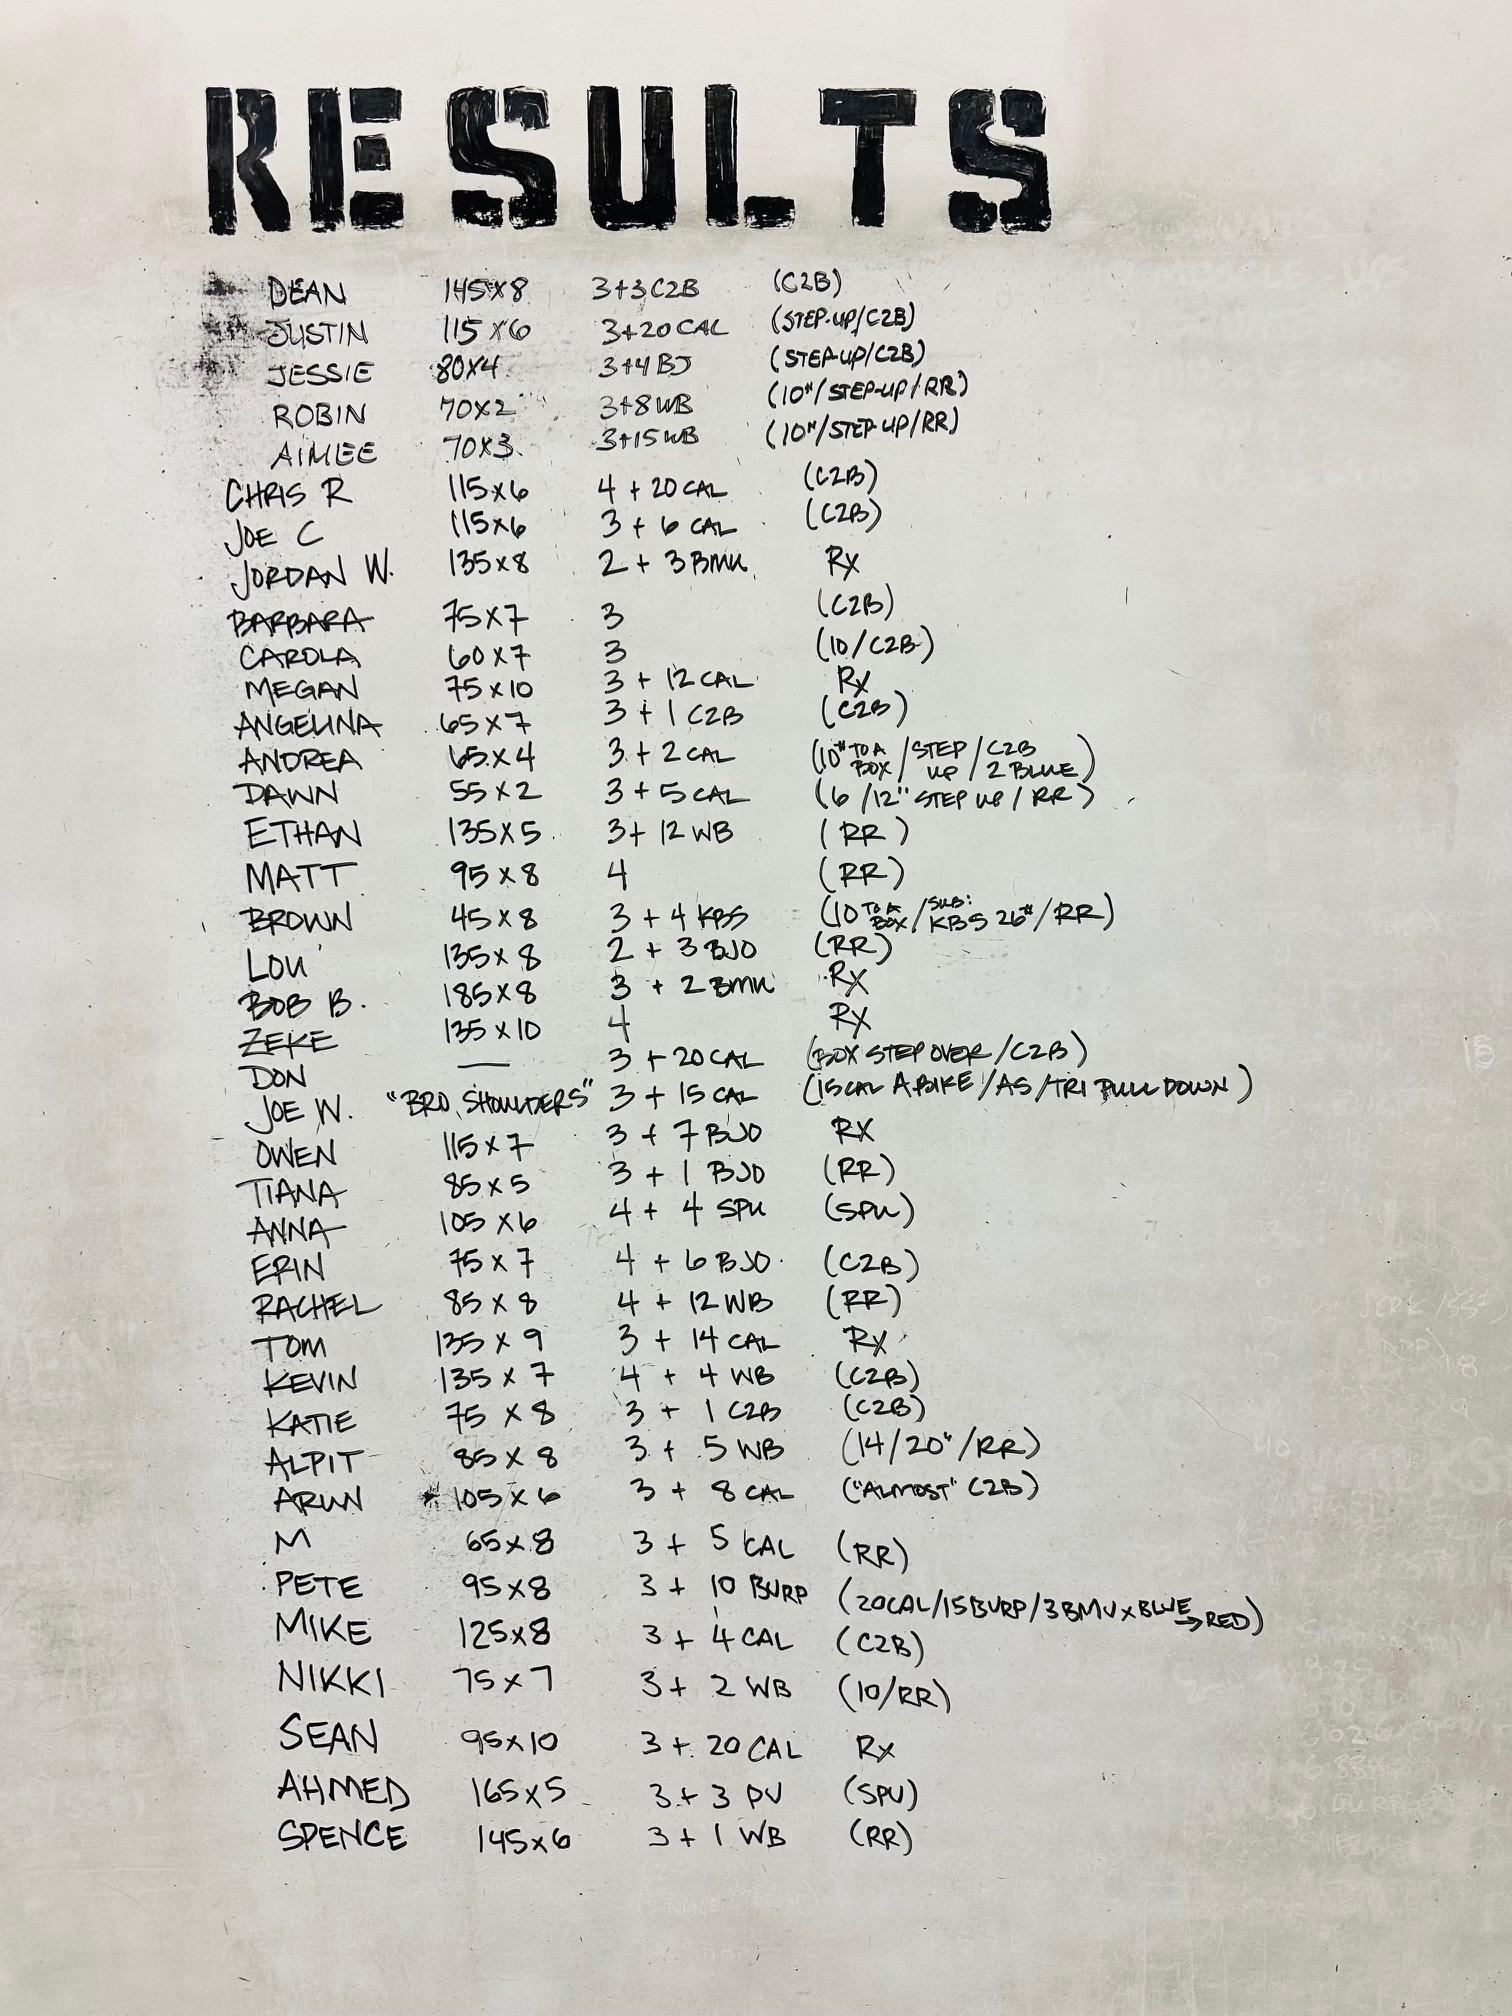 RESULTS
DEAN 145x8 3+3 C2B (C2B)
JUSTIN 115x6 3+20 CAL (STEP-UP/C2B)
JESSIE 80x4 3+4 BJ (STEP-UP/C2B)
ROBIN 70x2 3+8 WB (10"/STEP-UP/RR)
AIMEE 70x3 3+15 WB (10"/STEP-UP/RR)
CHRIS R 115x6 4 + 20 CAL (C2B)
JOE C 115x6 3 + 6 CAL (C2B)
JORDAN W. 135x8 2 + 3 BMU Rx
BARBARA 75x7 3 (C2B)
CAROLA 60x7 3 (10/C2B)
MEGAN 75x10 3 + 12 CAL Rx
ANGELINA 65x7 3 + 1 C2B (C2B)
ANDREA 65x4 3 + 2 CAL (10# TO A BOX/STEP UP/C2B 2 BLUE)
DAWN 55x2 3 + 5 CAL (6/12" STEP UP/RR)
ETHAN 135x5 3+ 12 WB (RR)
MATT 95x8 4 (RR)
BROWN 45x8 3 + 4 KBS (10 TO A BOX/SUB: KBS 26#/RR)
LOU 135x8 2 + 3 BJO (RR)
BOB B. 185x8 3 + 2 BMU Rx
ZEKE 135x10 4 Rx
DON — 3 + 20 CAL (BOX STEP OVER/C2B)
JOE W. "BRO, SHOULDERS" 3 + 15 CAL (15 CAL A.BIKE/AS/TRI PULL DOWN)
OWEN 115x7 3 + 7 BJO RX
TIANA 85x5 3 + 1 BJO (RR)
ANNA 105x6 4 + 4 SPU (SPU)
ERIN 75x7 4 + 6 BJO (C2B)
RACHEL 85x8 4 + 12 WB (RR)
TOM 135x9 3 + 14 CAL Rx
KEVIN 135x7 4 + 4 WB (C2B)
KATIE 75x8 3 + 1 C2B (C2B)
ALPIT 85x8 3 + 5 WB (14/20"/RR)
ARUN 105x6 3 + 8 CAL ("ALMOST" C2B)
M 65x8 3 + 5 CAL (RR)
PETE 95x8 3 + 10 BURP (20CAL/15BURP/3BMU x BLUE → RED)
MIKE 125x8 3 + 4 CAL (C2B)
NIKKI 75x7 3 + 2 WB (10/RR)
SEAN 95x10 3 + 20 CAL Rx
AHMED 165x5 3 + 3 PU (SPU)
SPENCE 145x6 3 + 1 WB (RR)